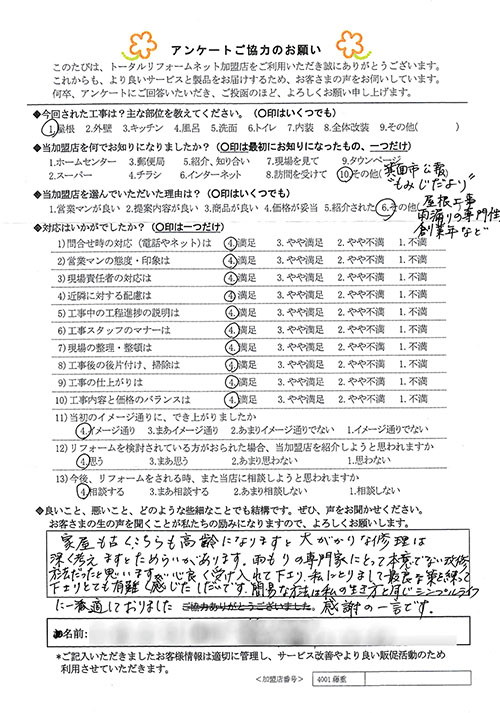 アンケートご協力のお願い
このたびは、トータルリフォームネット加盟店をご利用いただき誠にありがとうございます。
これからも、より良いサービスと製品をお届けするため、お客さまの声をお伺いしています。
何卒、アンケートにご回答いただき、ご投函のほど、よろしくお願い申し上げます。
◆今回された工事は?主な部位を教えてください。(〇印はいくつでも)
1.屋根 2.外壁 3.キッチン 4.風呂 5.洗面 6.トイレ 7.内装 8.全体改装 9.その他( )
◆当加盟店を何でお知りになりましたか?(〇印は最初にお知りになったもの、一つだけ)
1.ホームセンター 3.郵便局 5.紹介、知り合い 7.現場を見て 9.タウンページ
2.スーパー 4.チラシ 6.インターネット 8.訪問を受けて 10.その他(
市公報
"もみじだより"
◆当加盟店を選んでいただいた理由は?(〇印はいくつでも)
1.営業マンが良い 2.提案内容が良い 3.商品が良い 4.価格が妥当 5.紹介された 6.その他(
屋根工事
雨漏りの専門性
創業年など
◆対応はいかがでしたか?(〇印は一つだけ)
1)問合せ時の対応(電話やネット)は 4.満足 3.やや満足 2.やや不満 1.不満
2)営業マンの態度・印象は 4.満足 3.やや満足 2.やや不満 1.不満
3)現場責任者の対応は 4.満足 3.やや満足 2.やや不満 1.不満
4)近隣に対する配慮は 4.満足 3.やや満足 2.やや不満 1.不満
5)工事中の工程進捗の説明は 4.満足 3.やや満足 2.やや不満 1.不満
6)工事スタッフのマナーは 4.満足 3.やや満足 2.やや不満 1.不満
7)現場の整理・整頓は 4.満足 3.やや満足 2.やや不満 1.不満
8)工事後の後片付け、掃除は 4.満足 3.やや満足 2.やや不満 1.不満
9)工事の仕上がりは 4.満足 3.やや満足 2.やや不満 1.不満
10)工事内容と価格のバランスは 4.満足 3.やや満足 2.やや不満 1.不満
11)当初のイメージ通りに、でき上がりましたか
4.イメージ通り 3.まあイメージ通り 2.あまりイメージ通りでない 1.イメージ通りでない
12)リフォームを検討されている方がおられた場合、当加盟店を紹介しようと思われますか
4.思う 3.まあ思う 2.あまり思わない 1.思わない
13)今後、リフォームをされる時、また当店に相談しようと思われますか
4.相談する 3.まあ相談する 2.あまり相談しない 1.相談しない
◆良いこと、悪いこと、どのような些細なことでも結構です。ぜひ、声をお聞かせください。
お客さまの生の声を聞くことが私たちの励みになりますので、よろしくお願いします。
家屋も古くこちらも高齢になりますと大がかりな修理は
深く考えますとためらいがあります。雨もりの専門家にとって本意でない改修
方法だったと思いますが心良く受け入れて下さり、私にとりまして最良な策を練って
下さりとても有難く感じたしだいです。簡易な方法は私の生き方と同じシンプルライフ
に一番適しておりました ご協力ありがとうございました。 感謝の一言です。
お名前:
*ご記入いただきましたお客様情報は適切に管理し、サービス改善やより良い販促活動のため
利用させていただきます。
<加盟店番号> 4001藤重